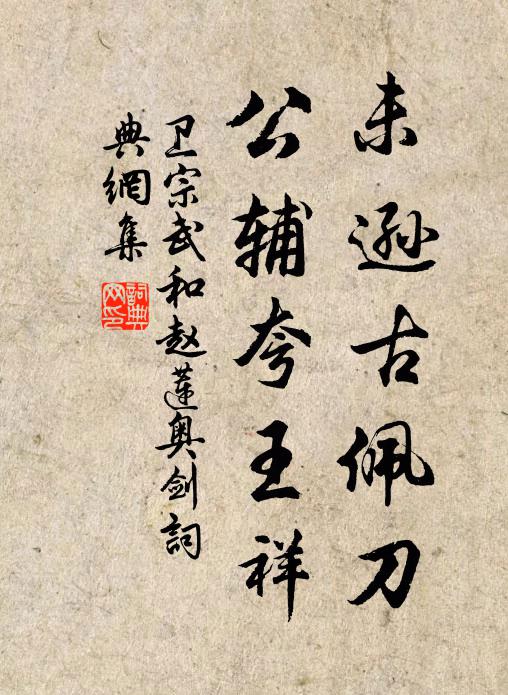 未逊古佩刀
公辅夸王祥
卫宗武和赵莲奥剑词
典網集
詞典網印